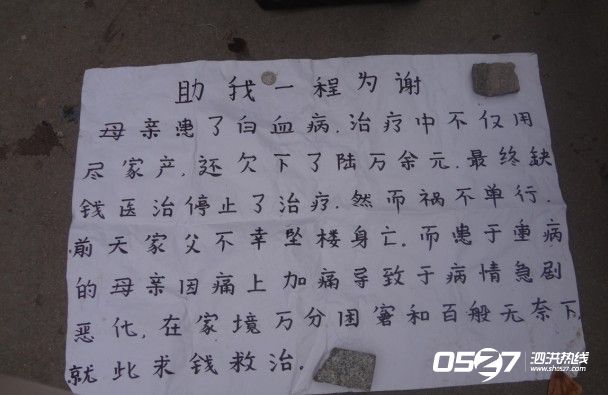 助我一程为谢
母亲患了白血病.治疗中不仅用
尽家产,还欠下了陆万余元.最终缺
钱医治停止了治疗.然而祸不单行.
前天家父不幸坠楼身亡.而患于重病
的母亲因痛上加痛导致于病情急剧
恶化.在家境万分困窘和百般无奈下.
就此求钱救治.
0527 泗洪热线
www.sh0527.com